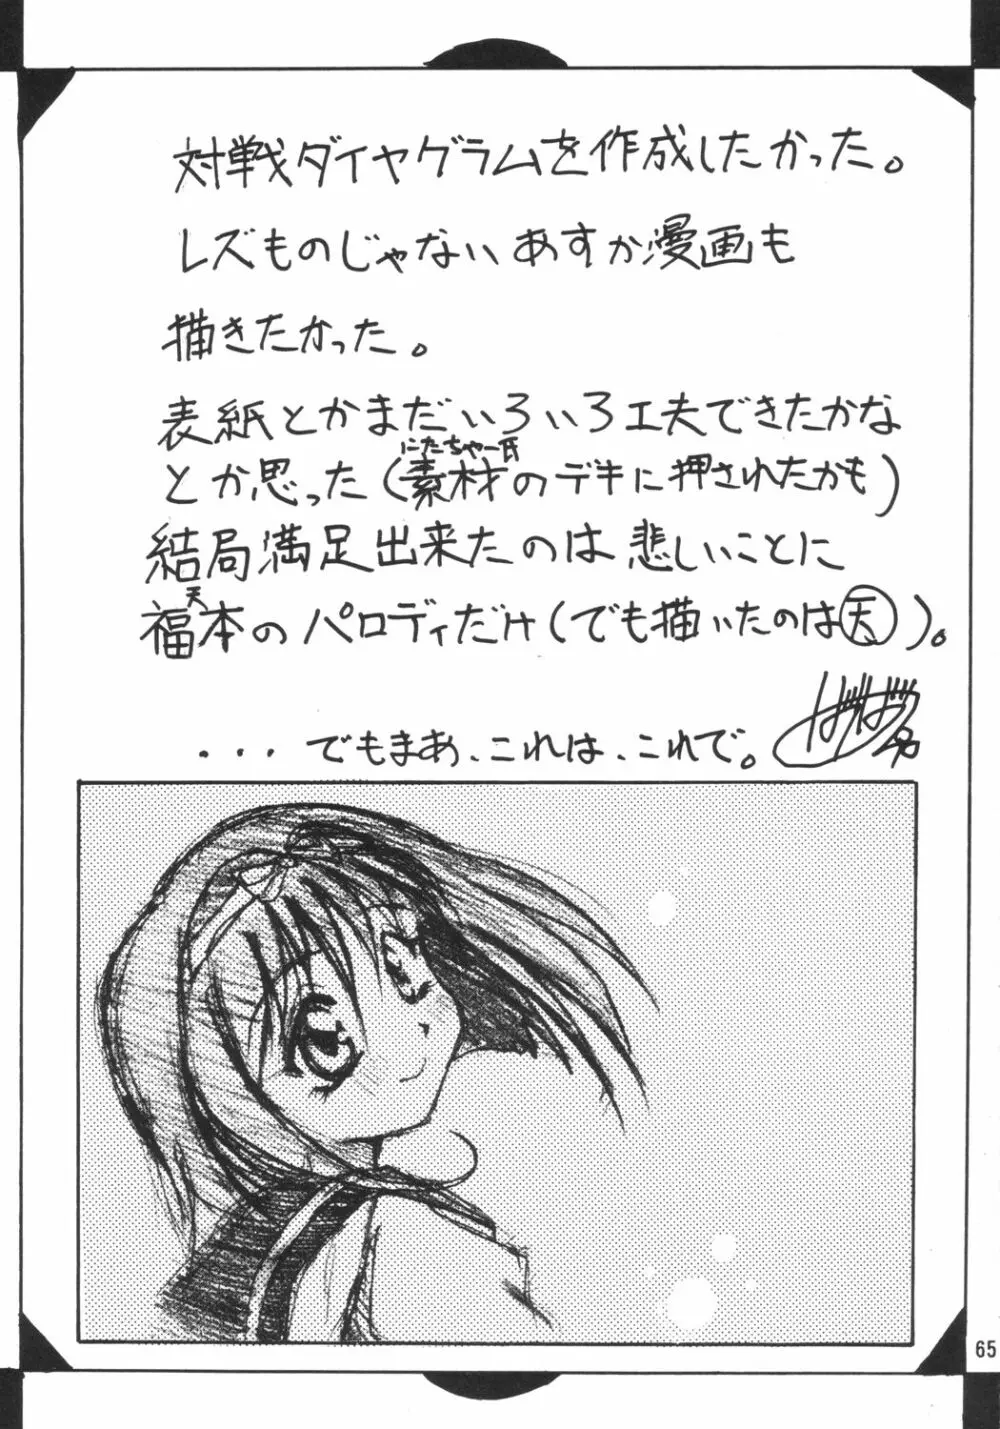 対戦ダイヤグラムを作成したかった。
レズものじゃないあすか漫画も
描きたかった。
表紙とかまだいろいろ工夫できたかな
にたちゃー氏
とか思った(素材のデキに押されたかも)
結局満足出来たのは悲しいことに
天
福本のパロディだけ(でも描いたのは天)。
・・・でもまあ、これは、これで。
65